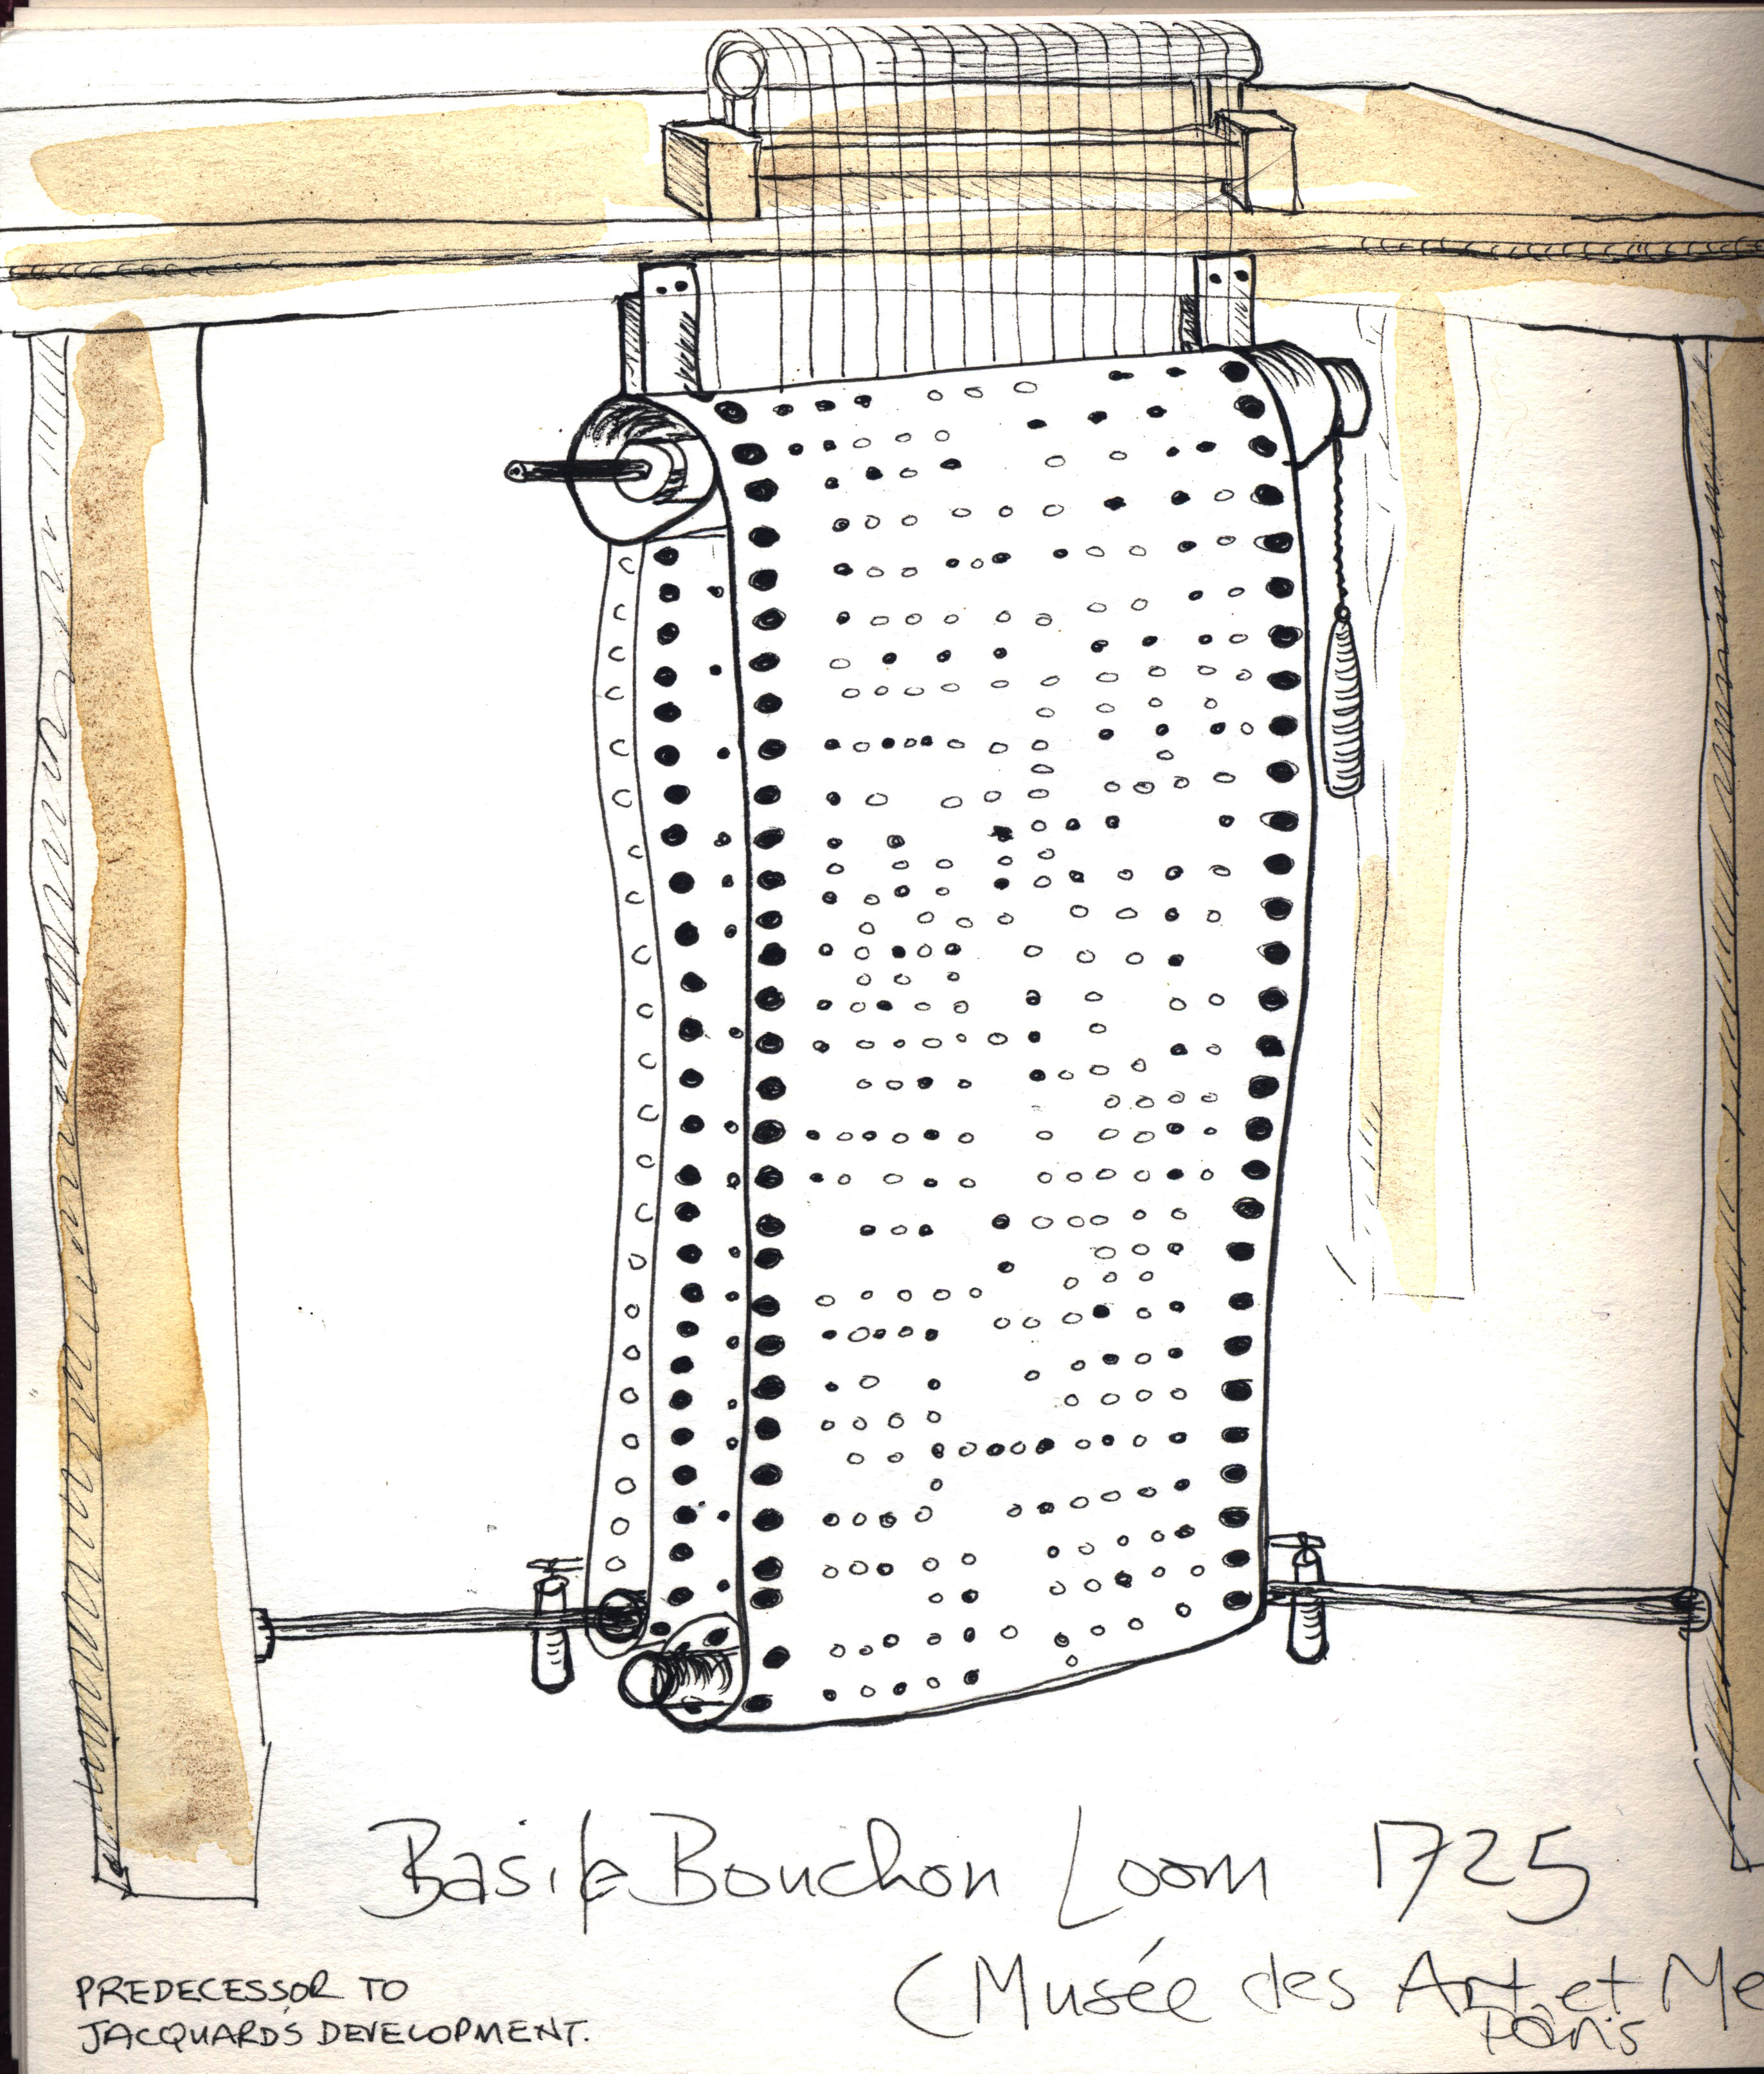 Basile Bouchon Loom 1725
(Musée des Art. et Me
Paris
PREDECESSOR TO
JACQUARD'S DEVELOPMENT.